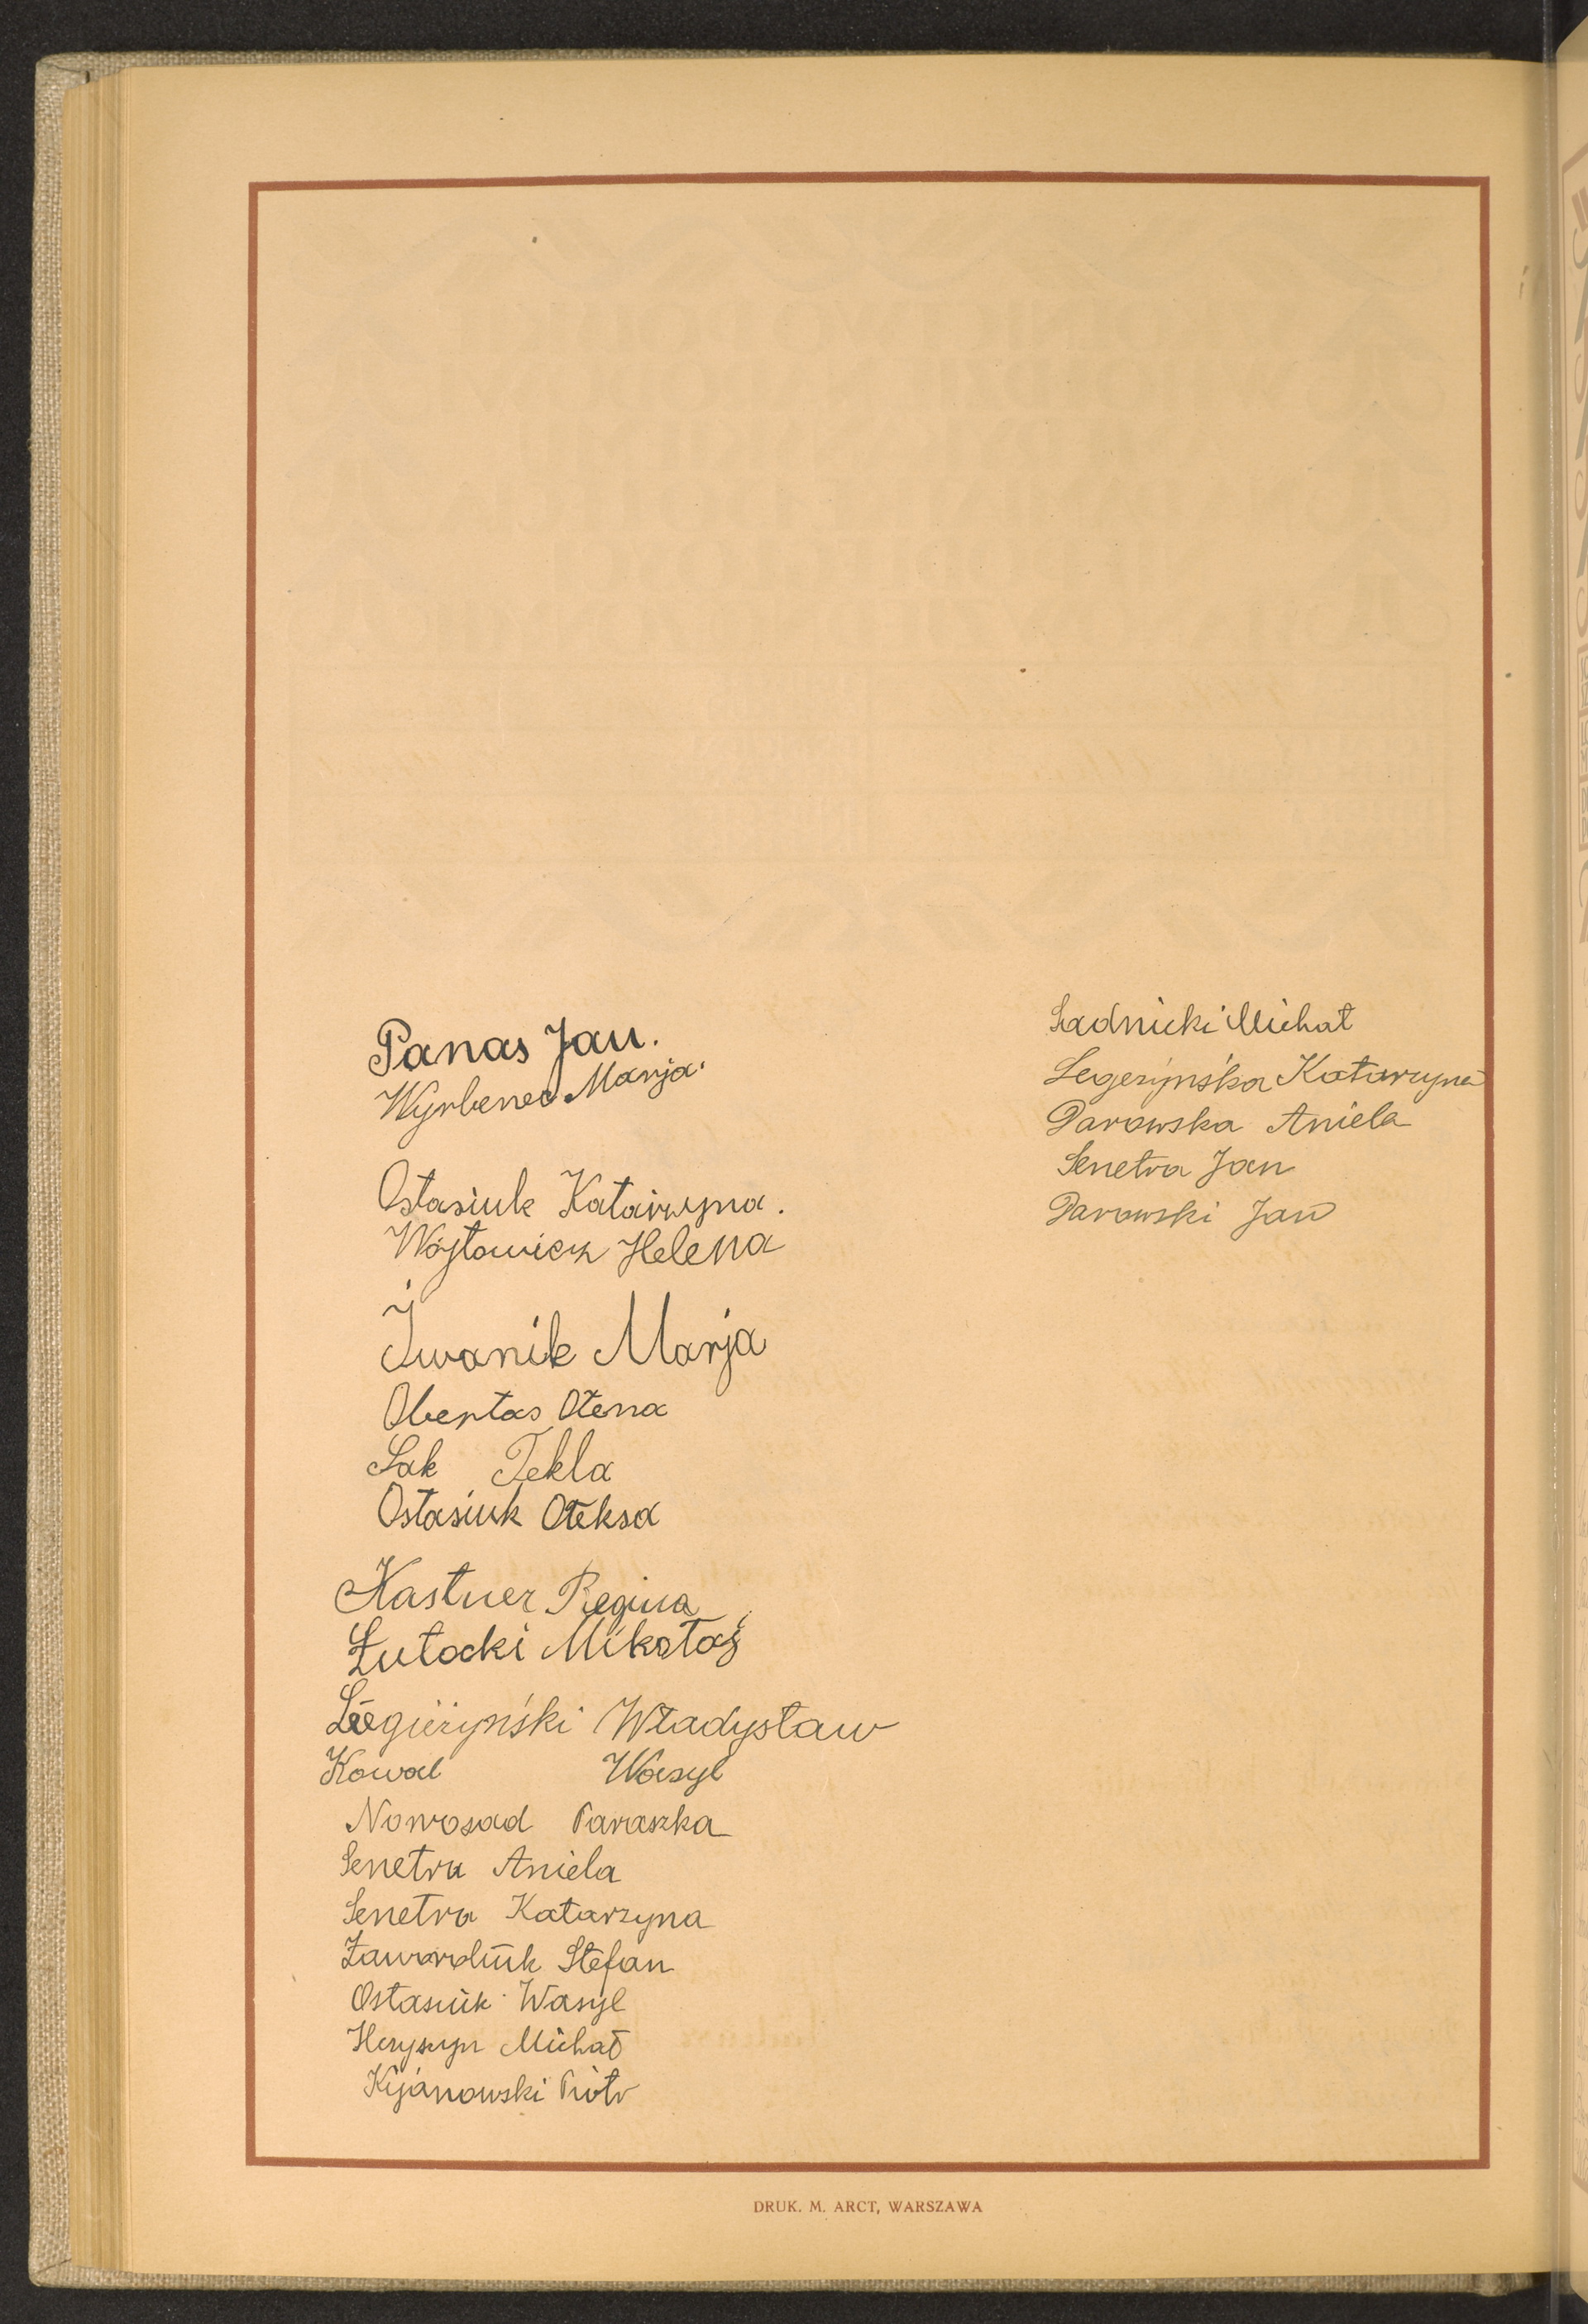 Panas Jan.
Wyrbenec Marja.
Ostasiuk Katarzyna.
Wójtowicz Helena
Iwanik Marja
Obertas Ołena
Sak Tekla
Ostasiuk Ołeksa
Kastner Regina
Łutocki Mikołaj
Legieżyński Władysław
Kowal Wasyl
Nowosad Paraszka
Senetra Aniela
Senetra Katarzyna
Stefan
Ostasiuk Wasyl
Heryszyn Michał
Kijanowski Piotr
Sadnicki Michał
Legeżyńska Katarzyna
Parowska Aniela
Senetra Jan
Parowski Jan
DRUK. M. ARCT, WARSZAWA